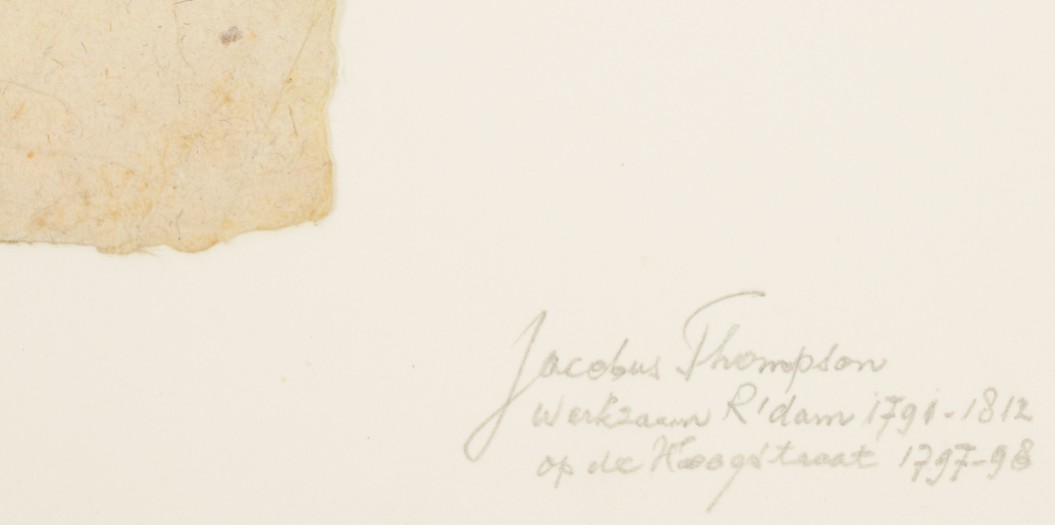 Jacobus Thompson
werkzaam R'dam 1791-1812
op de Hoogstraat 1797-98